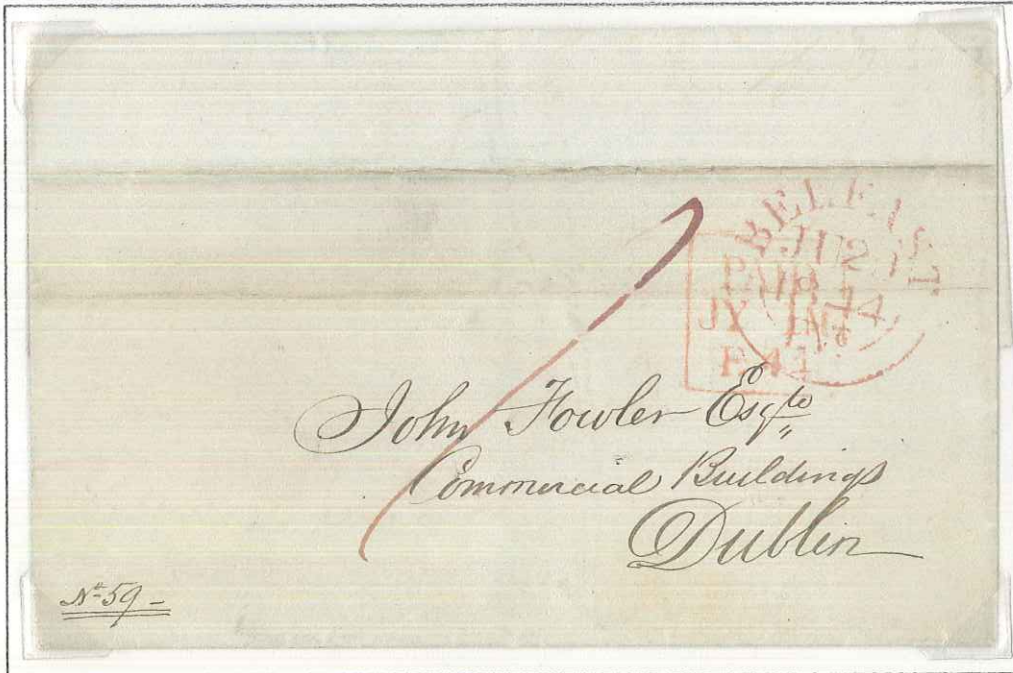 BELFAST
PAID
JY 1
John Fowler Esqre
Commercial Buildings
Dublin
No 59 -